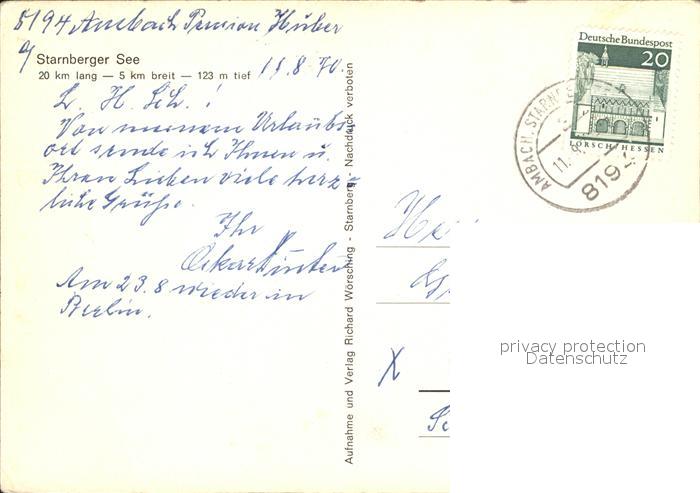 8194 Ambach Pension Huber
a/ Starnberger See
20 km lang — 5 km breit — 123 m tief
11.8.70
L. H. Sch. !
Von meinem Urlaubs-
ort sende ich Ihnen u.
Ihren Lieben viele herz-
liche Grüße.
Ihr
Am 23.8 wieder in
Berlin.
Aufnahme und Verlag Richard Wörsching - Starnberg Nachdruck verboten
Deutsche Bundespost
20
LORSCH/HESSEN
AMBACH, STARNBE
819
privacy protection
Datenschutz